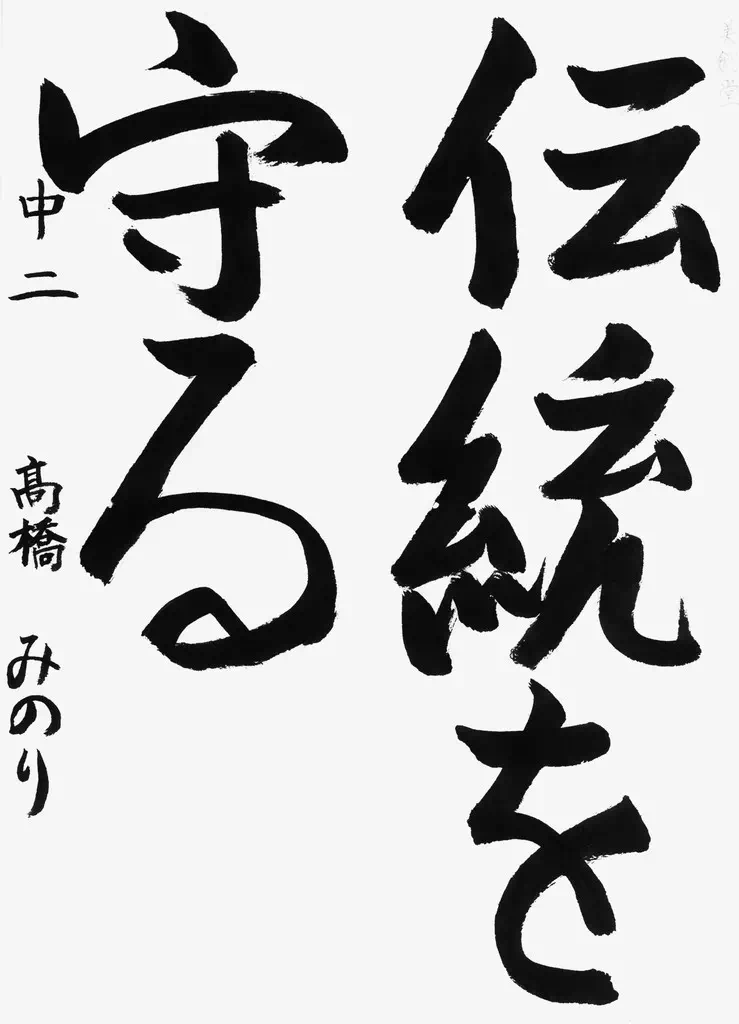 伝統を
守る
中二 髙橋 みのり